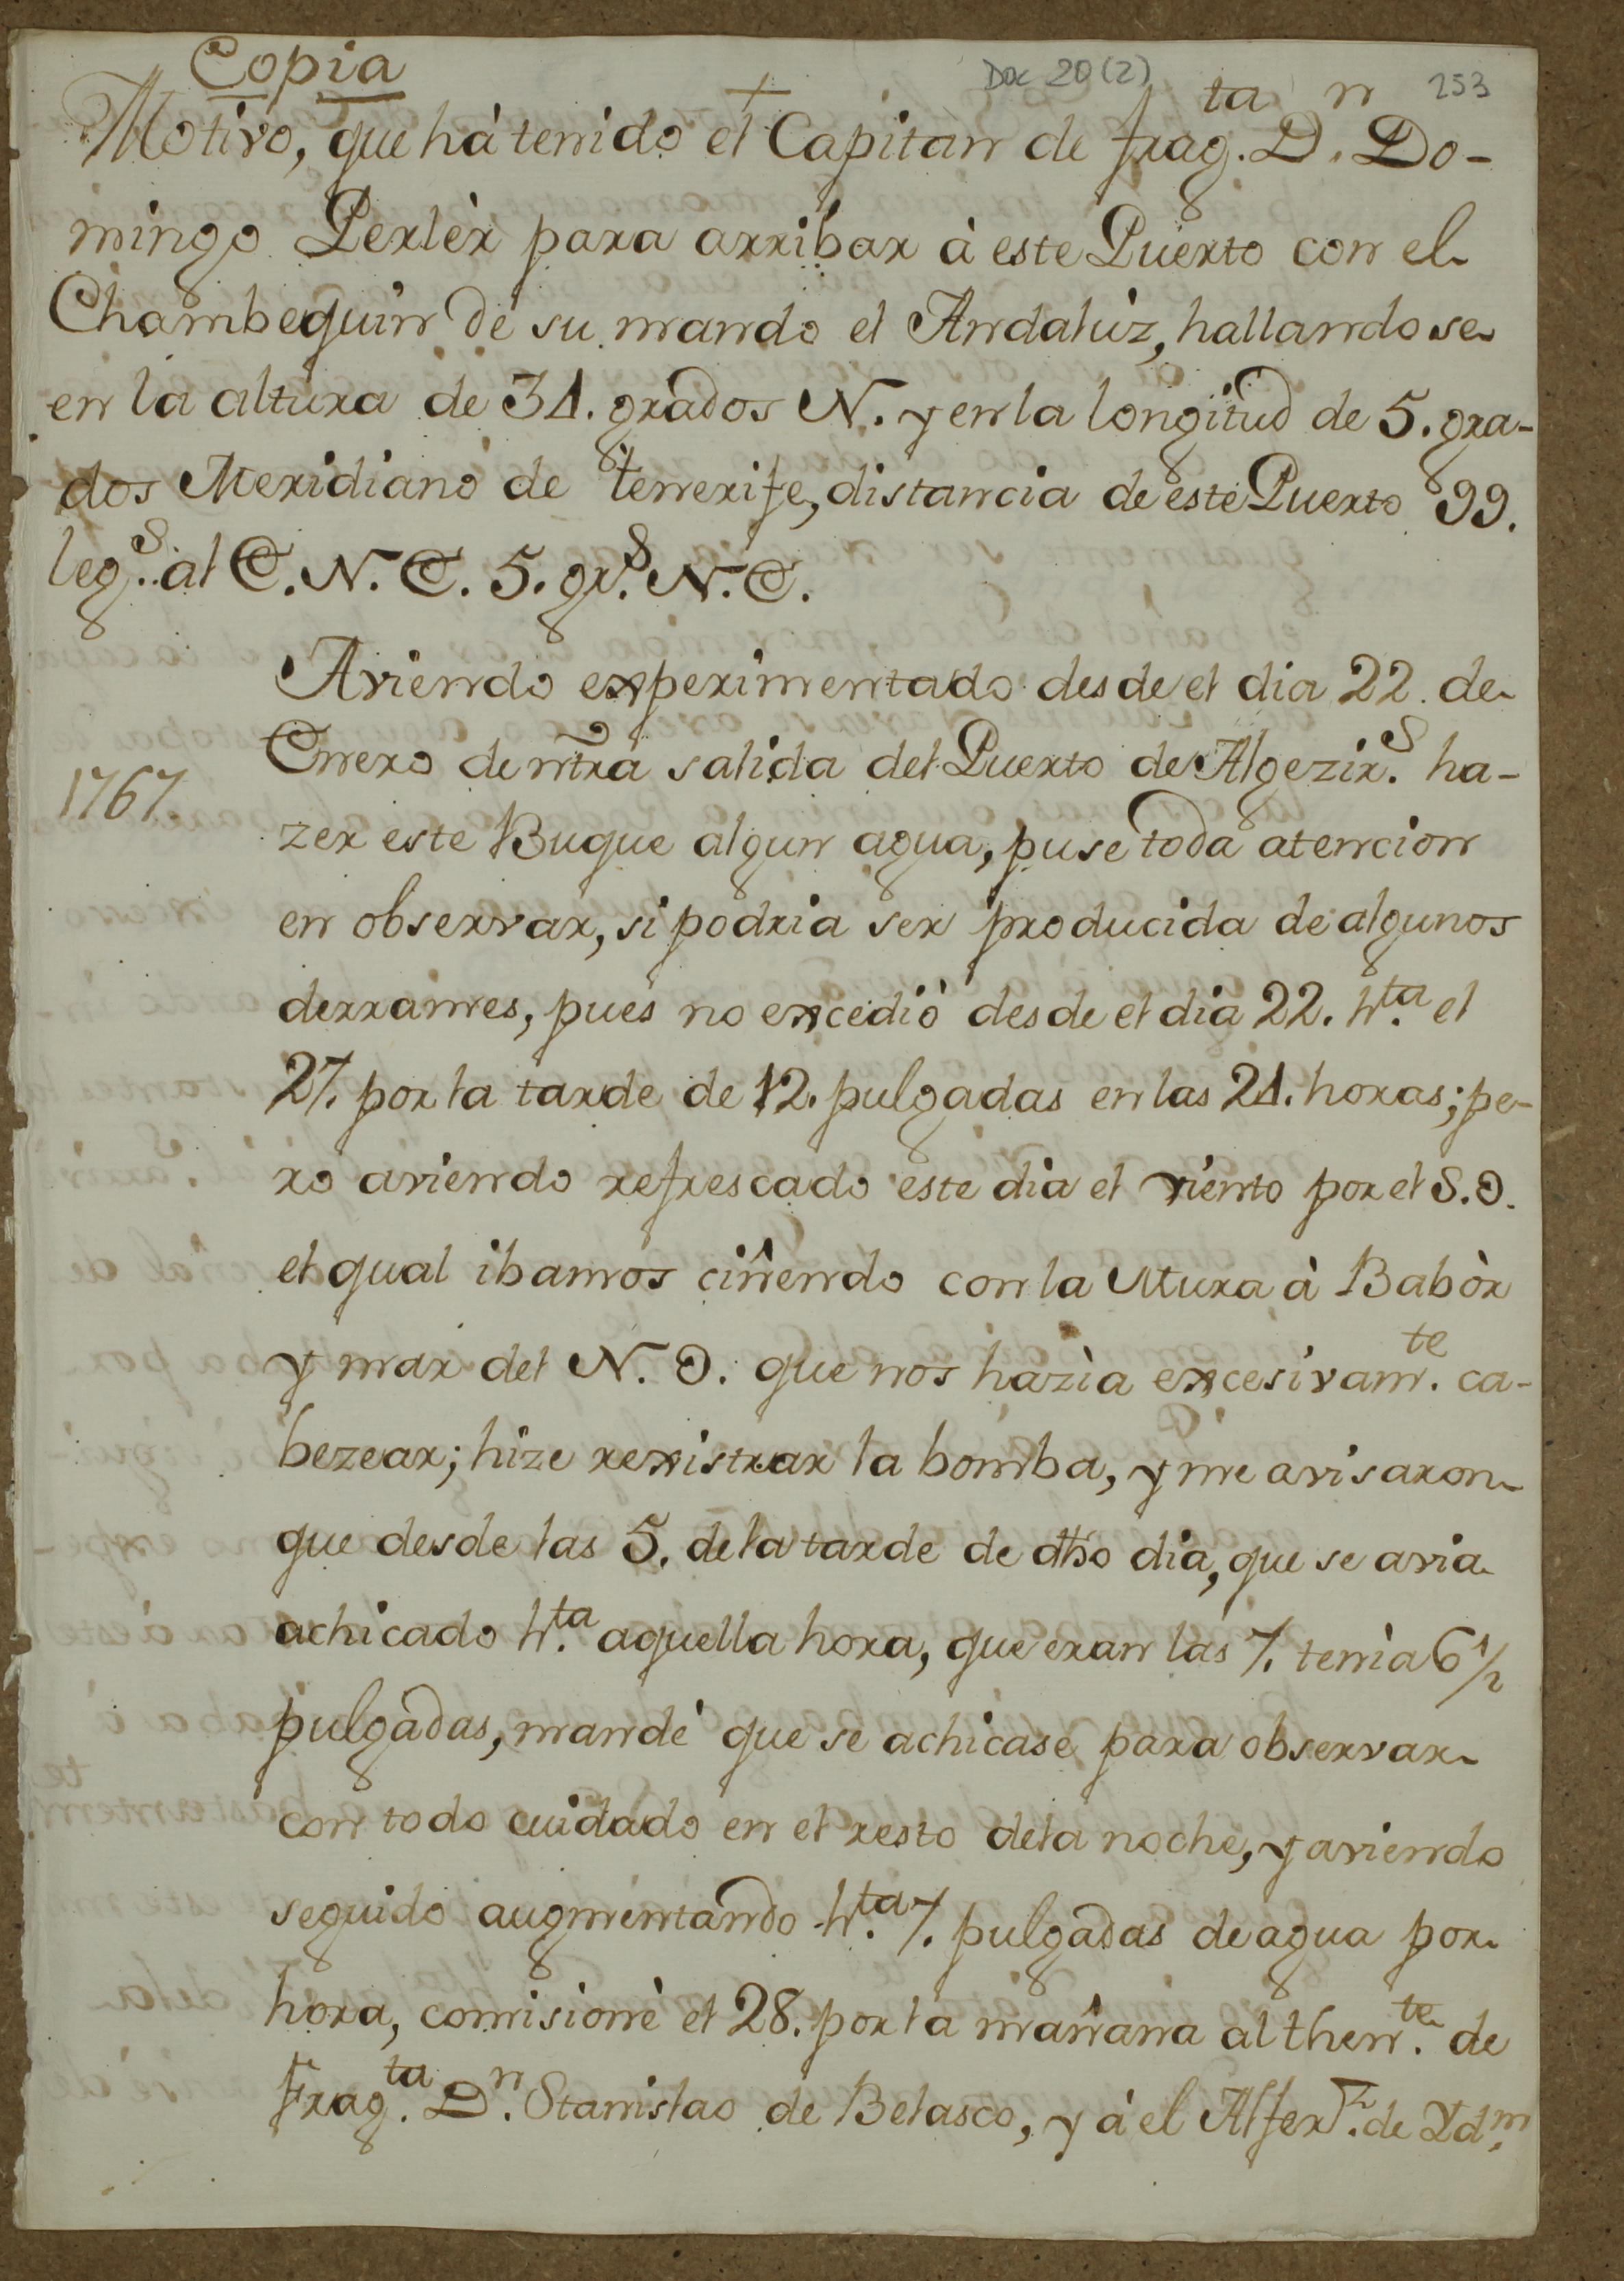 Copia
Doc 20(2)
253
+
Motivo, que hà tenido el Capitan de frag.ta D.n Do-
mingo Perlèr para arribar à este Puerto con el
Chambequin de su mando el Andaluz, hallandose
en la altura de 34. grados N. y en la longitud de 5. gra-
dos Meridiano de tenerife, distancia de este Puerto 99.
leg.s al E. N. E. 5. gr.s N. E.
Aviendo experimentado desde el dia 22. de
1767
Enero de ntra salida del Puerto de Algezir.s ha-
zer este Buque algun agua, puse toda atencion
en observar, si podria ser producida de algunos
derrames, pues no excediò desde el dia 22. h.ta el
27. por la tarde de 12. pulgadas en las 24. horas; pe-
ro aviendo refrescado este dia el viento por el S.O.
el qual ibamos ciñendo con la Mura à Babòr
y mar del N. O. que nos hazìa excesivam.te ca-
bezear; hize rexistrar la bomba, y me avisaron
que desde las 5. dela tarde de dho dia, que se avia
achicado h.ta aquella hora, que eran las 7. tenìa 6 1/2
pulgadas, mandè que se achicase para observar
con todo cuidado en el resto dela noche, y aviendo
seguido augmentando h.ta 7. pulgadas de agua por
hora, comisionè el 28. por la mañana al then.te de
Frag.ta D.n Stanislao de Belasco, y à el Alfer.z de Yd.m